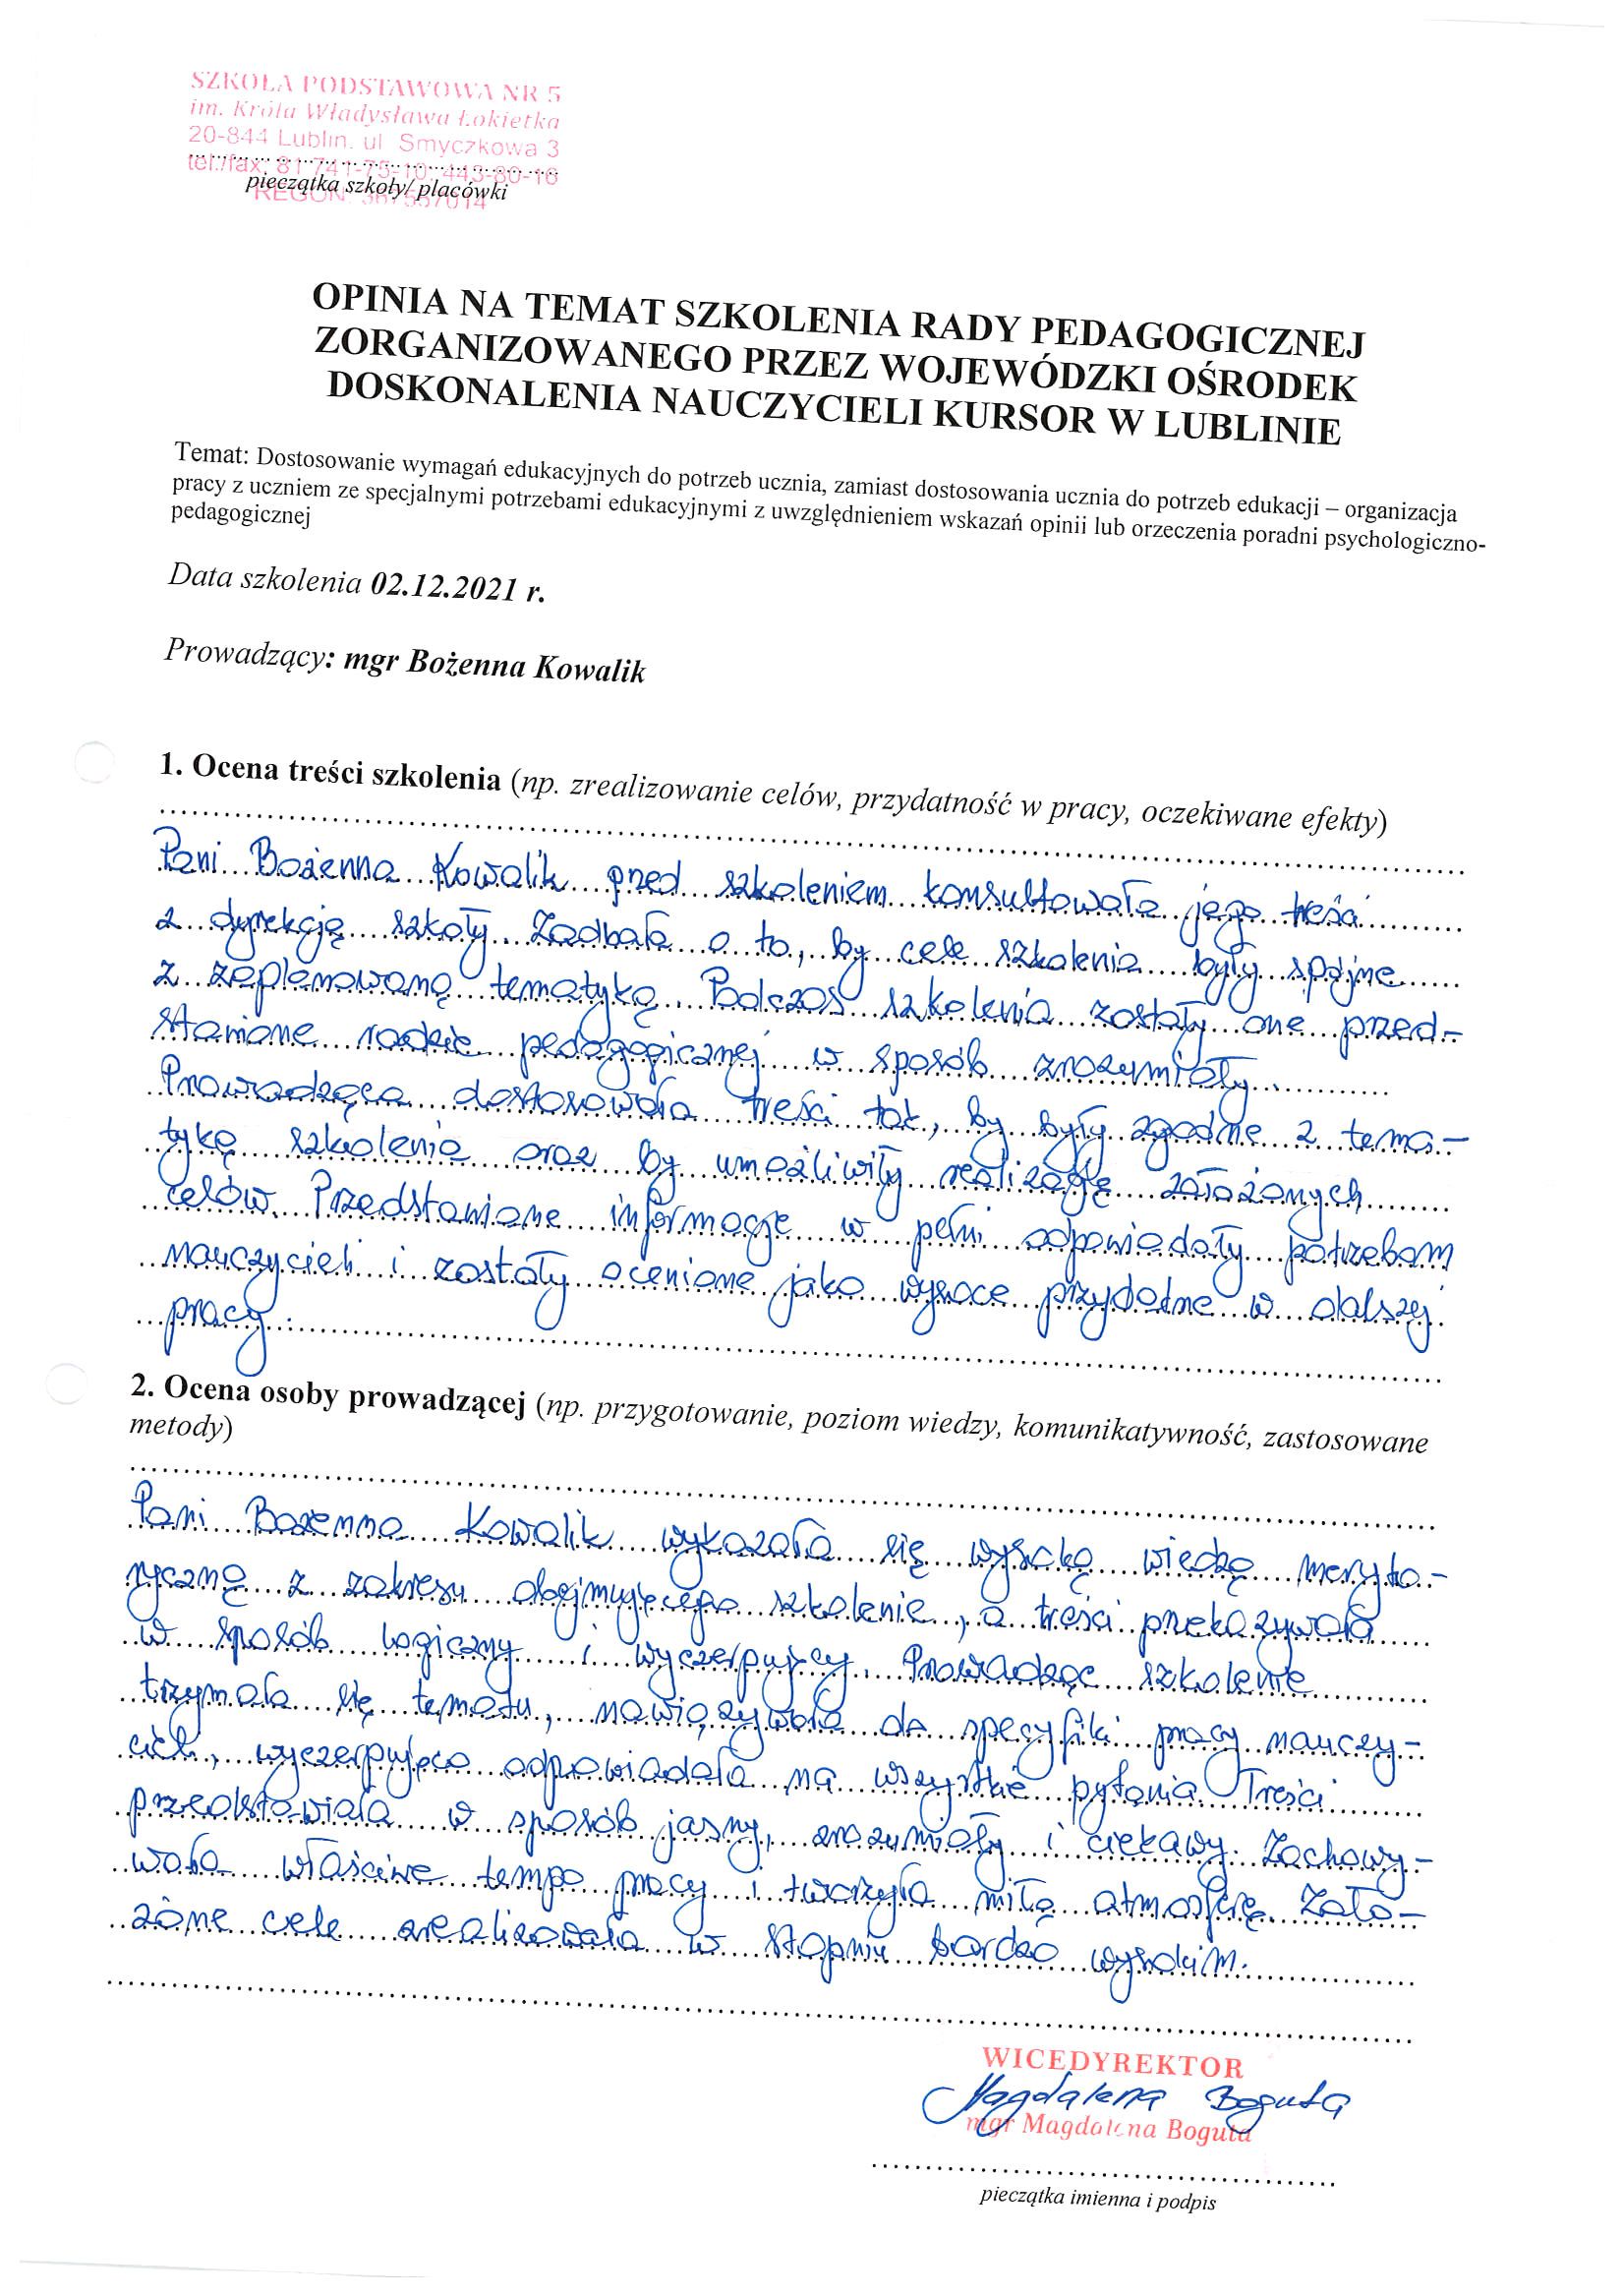 SZKOŁA PODSTAWOWA NR 5
im. Króla Władysława Łokietka
20-844 Lublin. ul Smyczkowa 3
tel./fax: 81 741-75-10; 443-80-10
pieczątka szkoły/ placówki
REGON: 367557014
OPINIA NA TEMAT SZKOLENIA RADY PEDAGOGICZNEJ
ZORGANIZOWANEGO PRZEZ WOJEWÓDZKI OŚRODEK
DOSKONALENIA NAUCZYCIELI KURSOR W LUBLINIE
Temat: Dostosowanie wymagań edukacyjnych do potrzeb ucznia, zamiast dostosowania ucznia do potrzeb edukacji – organizacja
pracy z uczniem ze specjalnymi potrzebami edukacyjnymi z uwzględnieniem wskazań opinii lub orzeczenia poradni psychologiczno-
pedagogicznej
Data szkolenia 02.12.2021 r.
Prowadzący: mgr Bożenna Kowalik
1. Ocena treści szkolenia (np. zrealizowanie celów, przydatność w pracy, oczekiwane efekty)
Pani Bożenna Kowalik przed szkoleniem konsultowała jego treści
z dyrekcją szkoły. Zadbała o to, by cele szkolenia były spójne
z zaplanowaną tematyką. Podczas szkolenia zostały one przed-
stawione radzie pedagogicznej w sposób zrozumiały.
Prowadząca dostosowała treści tak, by były zgodne z tema-
tyką szkolenia oraz by umożliwiły realizację założonych
celów. Przedstawione informacje w pełni odpowiadały potrzebom
nauczycieli i zostały ocenione jako wysoce przydatne w dalszej
pracy.
2. Ocena osoby prowadzącej (np. przygotowanie, poziom wiedzy, komunikatywność, zastosowane
metody)
Pani Bożenna Kowalik wykazała się wysoką wiedzą meryto-
ryczną z zakresu obejmującego szkolenie, a treści przekazywała
w sposób logiczny i wyczerpujący. Prowadząc szkolenie
trzymała się tematu, nawiązywała do specyfiki pracy nauczy-
cieli, wyczerpująco odpowiadała na wszystkie pytania. Treści
przedstawiała w sposób jasny, zrozumiały i ciekawy. Zachowy-
wała właściwe tempo pracy i tworzyła miłą atmosferę. Zało-
żone cele zrealizowała w stopniu bardzo wysokim.
WICEDYREKTOR
Magdalena Boguta
mgr Magdalena Boguta
pieczątka imienna i podpis